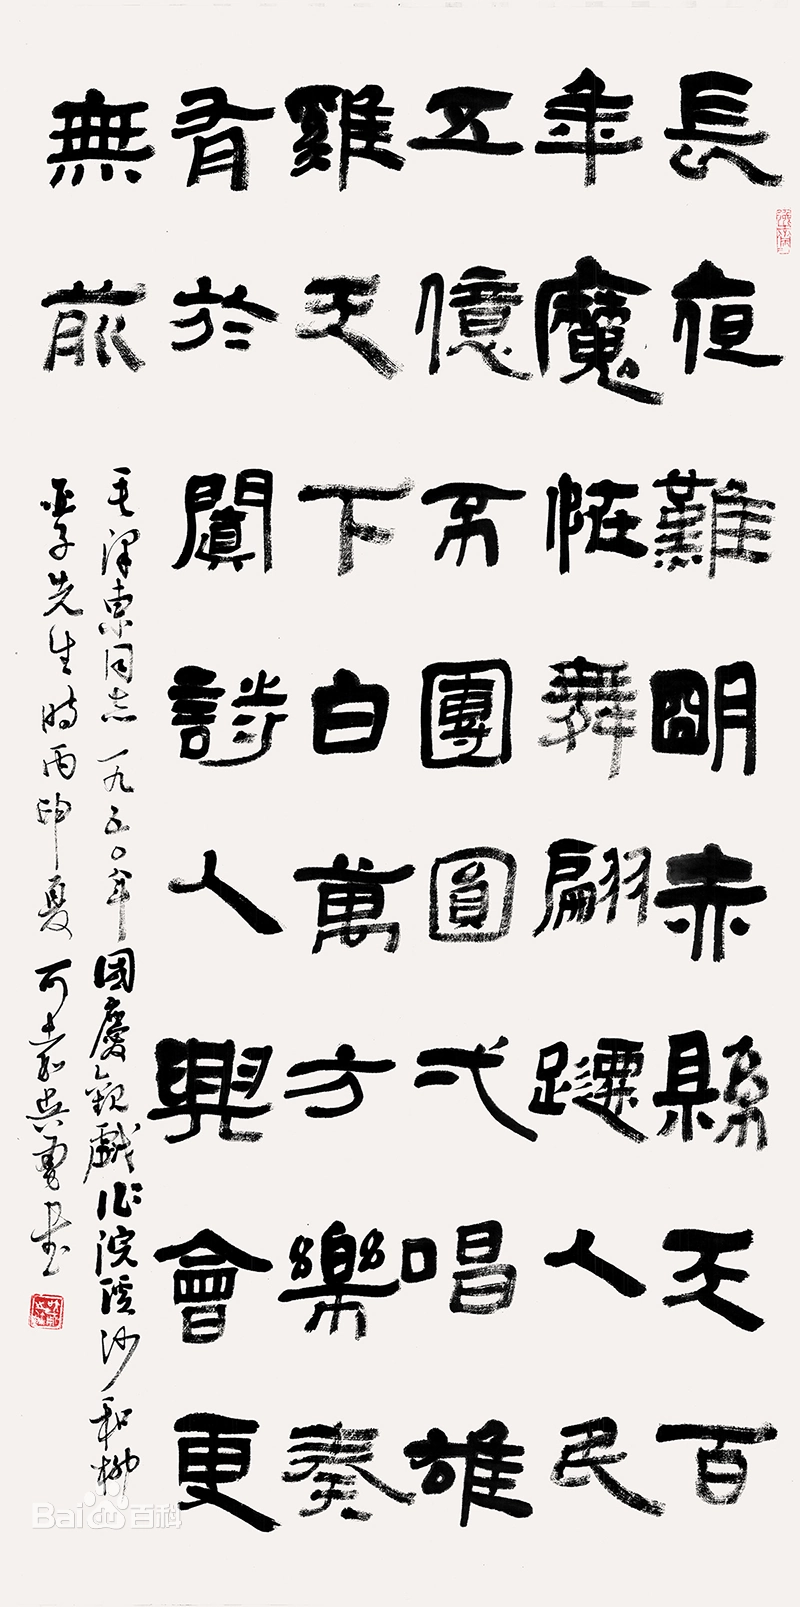 長夜難朙赤縣天百
年魔怪舞翩躚人民
五億不團圓弌唱雄
雞天下白萬方樂奏
有於闐詩人興會更
無前
毛澤東同志一九五〇年國慶觀戲作浣溪沙和柳
亞子先生時丙申夏
Baidu百科